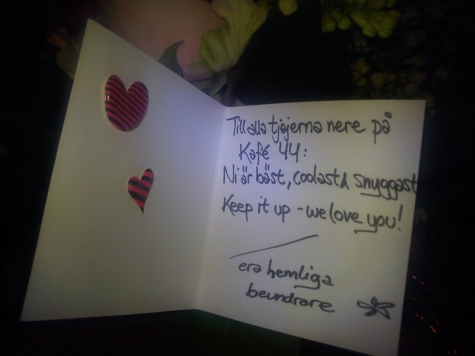 Till alla tjejerna nere på
Kafé 44:
Ni är bäst, coolast & snyggast
Keep it up - we love you!
era hemliga
beundrare